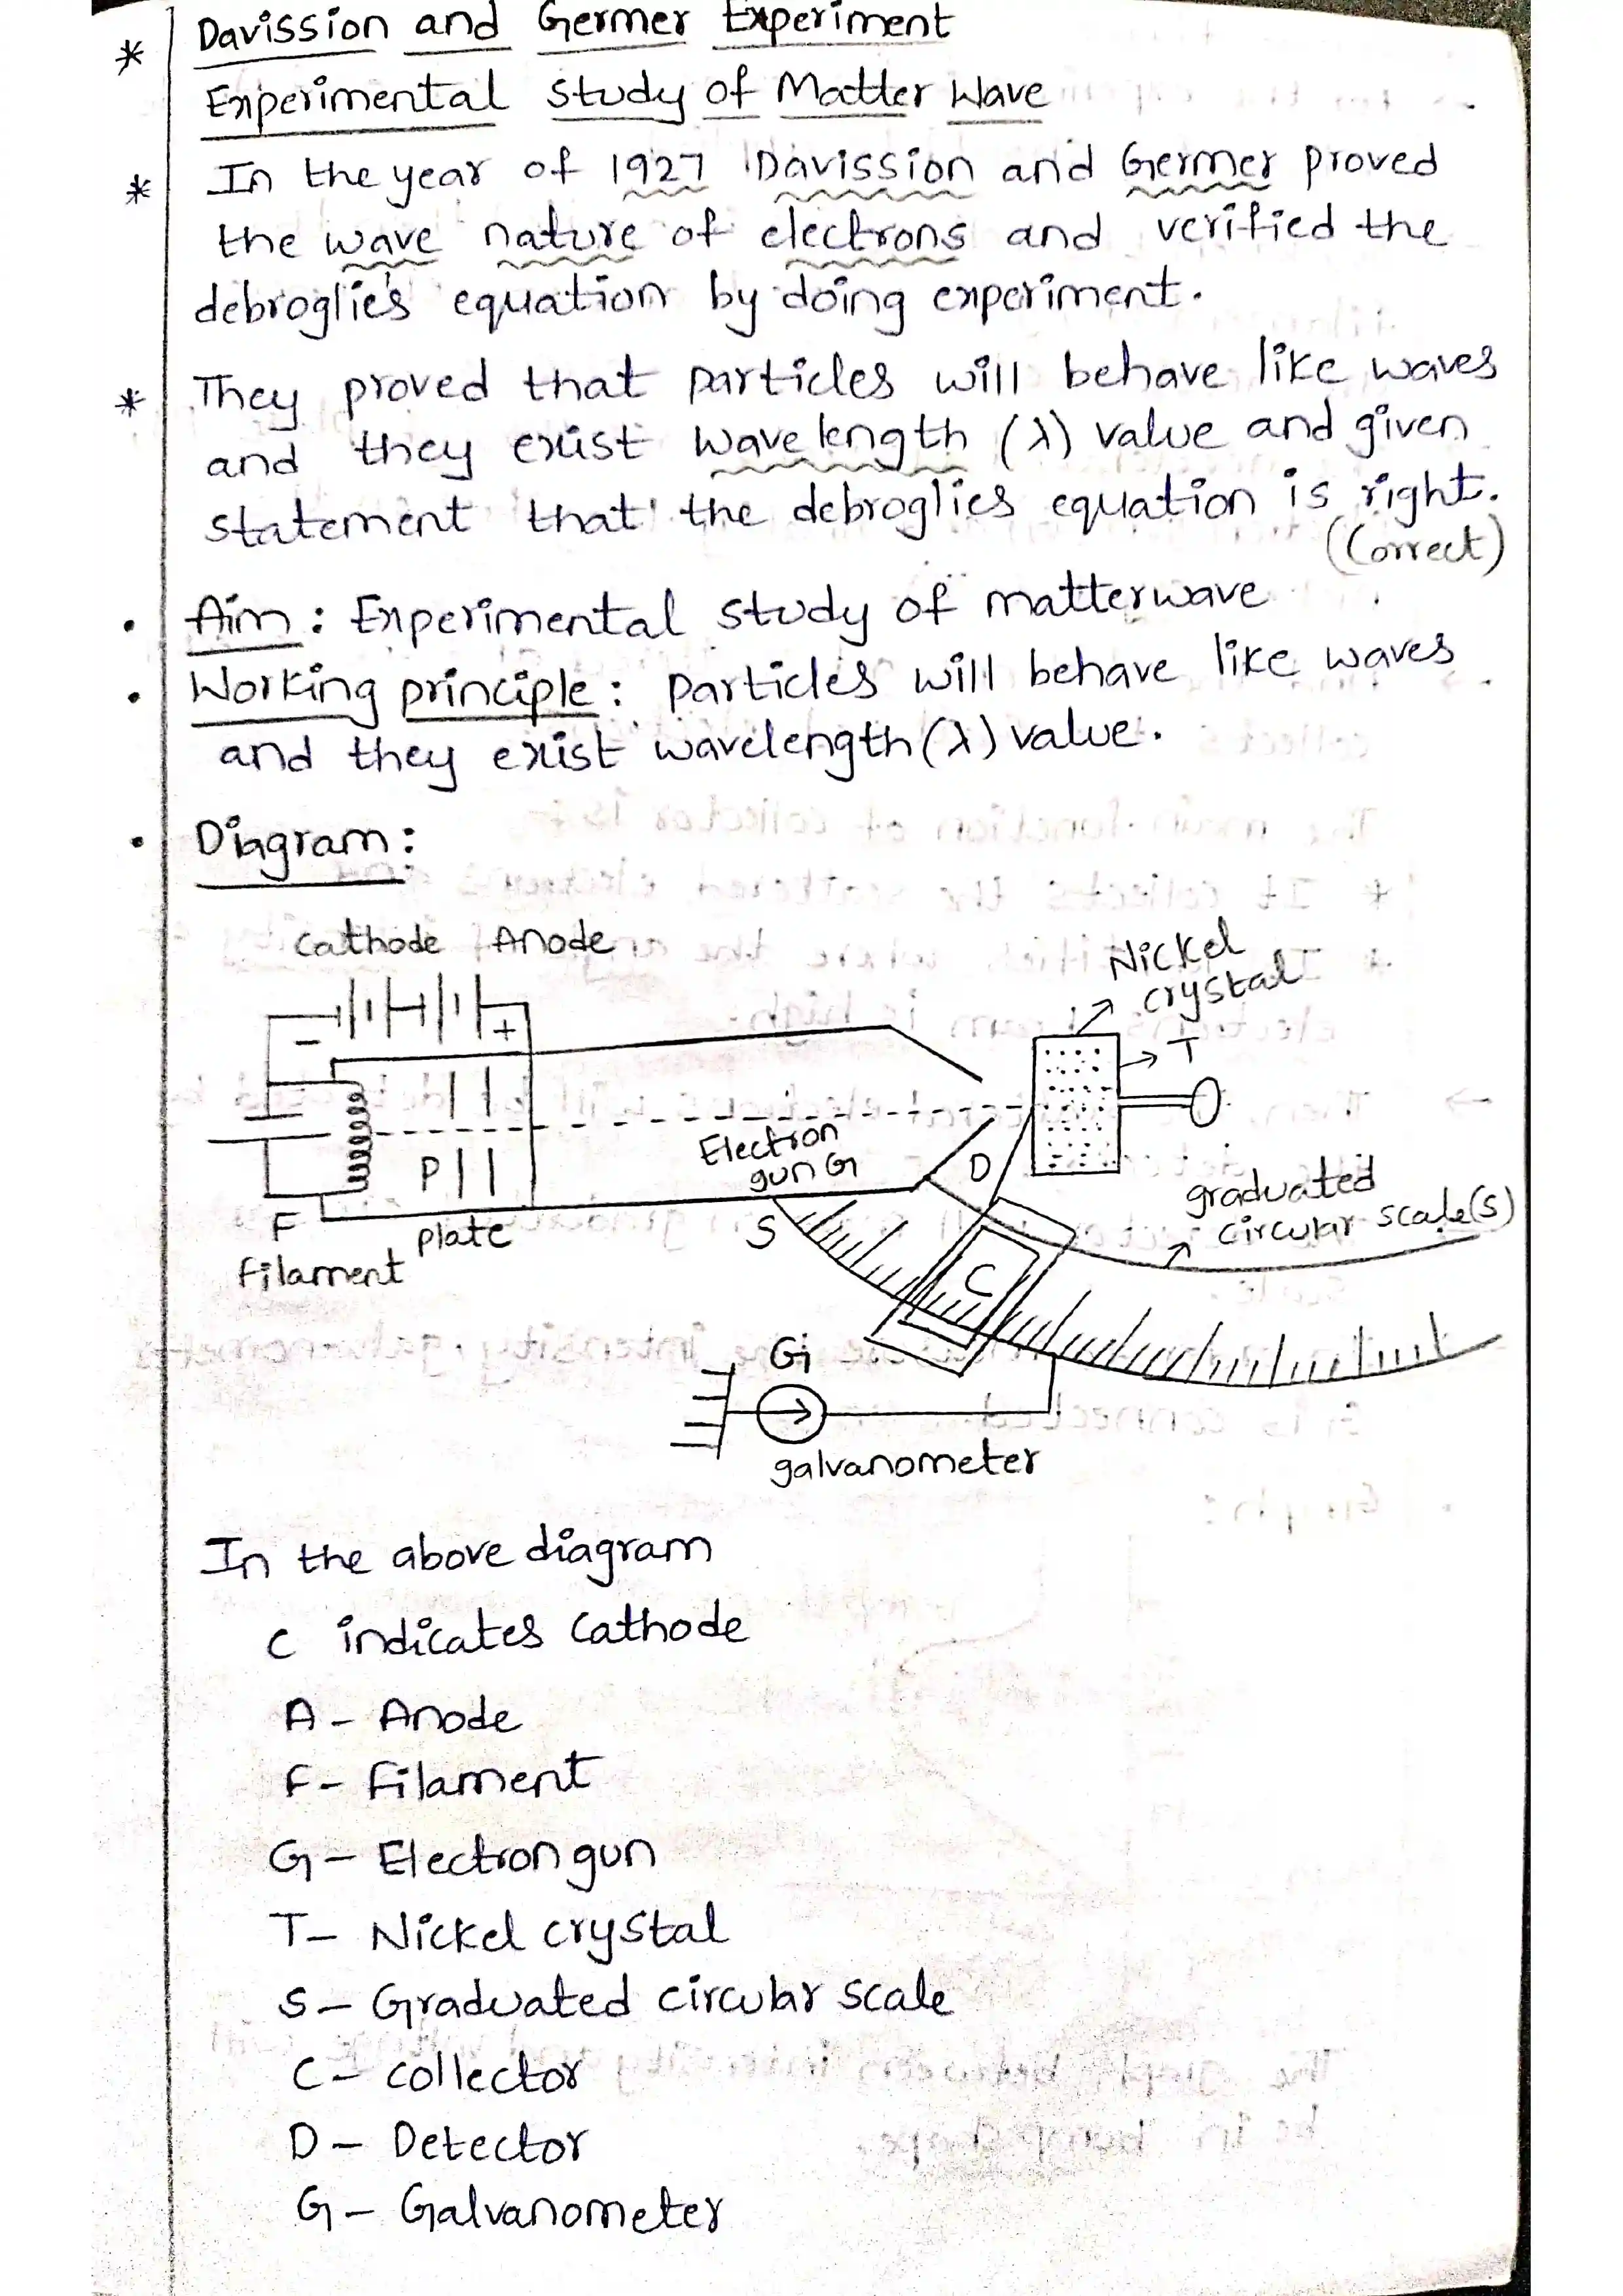 * Davission and Germer Experiment
Experimental study of Matter Wave
* In the year of 1927 Davission and Germer proved
the wave nature of electrons and verified the
debroglie's equation by doing experiment.
* They proved that particles will behave like waves
and they exist wavelength (λ) value and given
statement that the debroglies equation is right.
(Correct)
• Aim : Experimental study of matterwave
• Working principle : particles will behave like waves
and they exist wavelength (λ) value.
• Diagram :
Cathode Anode
Nickel
crystal
- +
T
Electron
gun G
P
D
F
plate
S
graduated
circular scale(s)
filament
C
G
galvanometer
In the above diagram
C indicates Cathode
A - Anode
F - Filament
G - Electron gun
T - Nickel crystal
S - Graduated circular scale
C - collector
D - Detector
G - Galvanometer